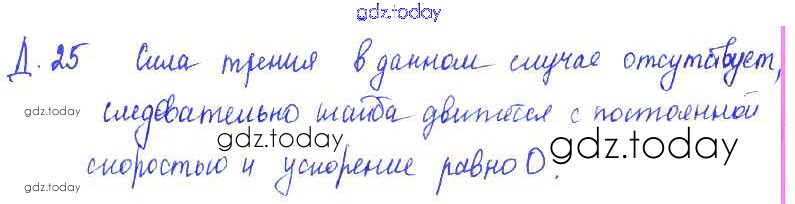 gdz.today
Д. 25 Сила трения в данном случае отсутствует,
gdz.today
следовательно шайба движется с постоянной
gdz.today
gdz.today
скоростью и ускорение равно 0.
gdz.today